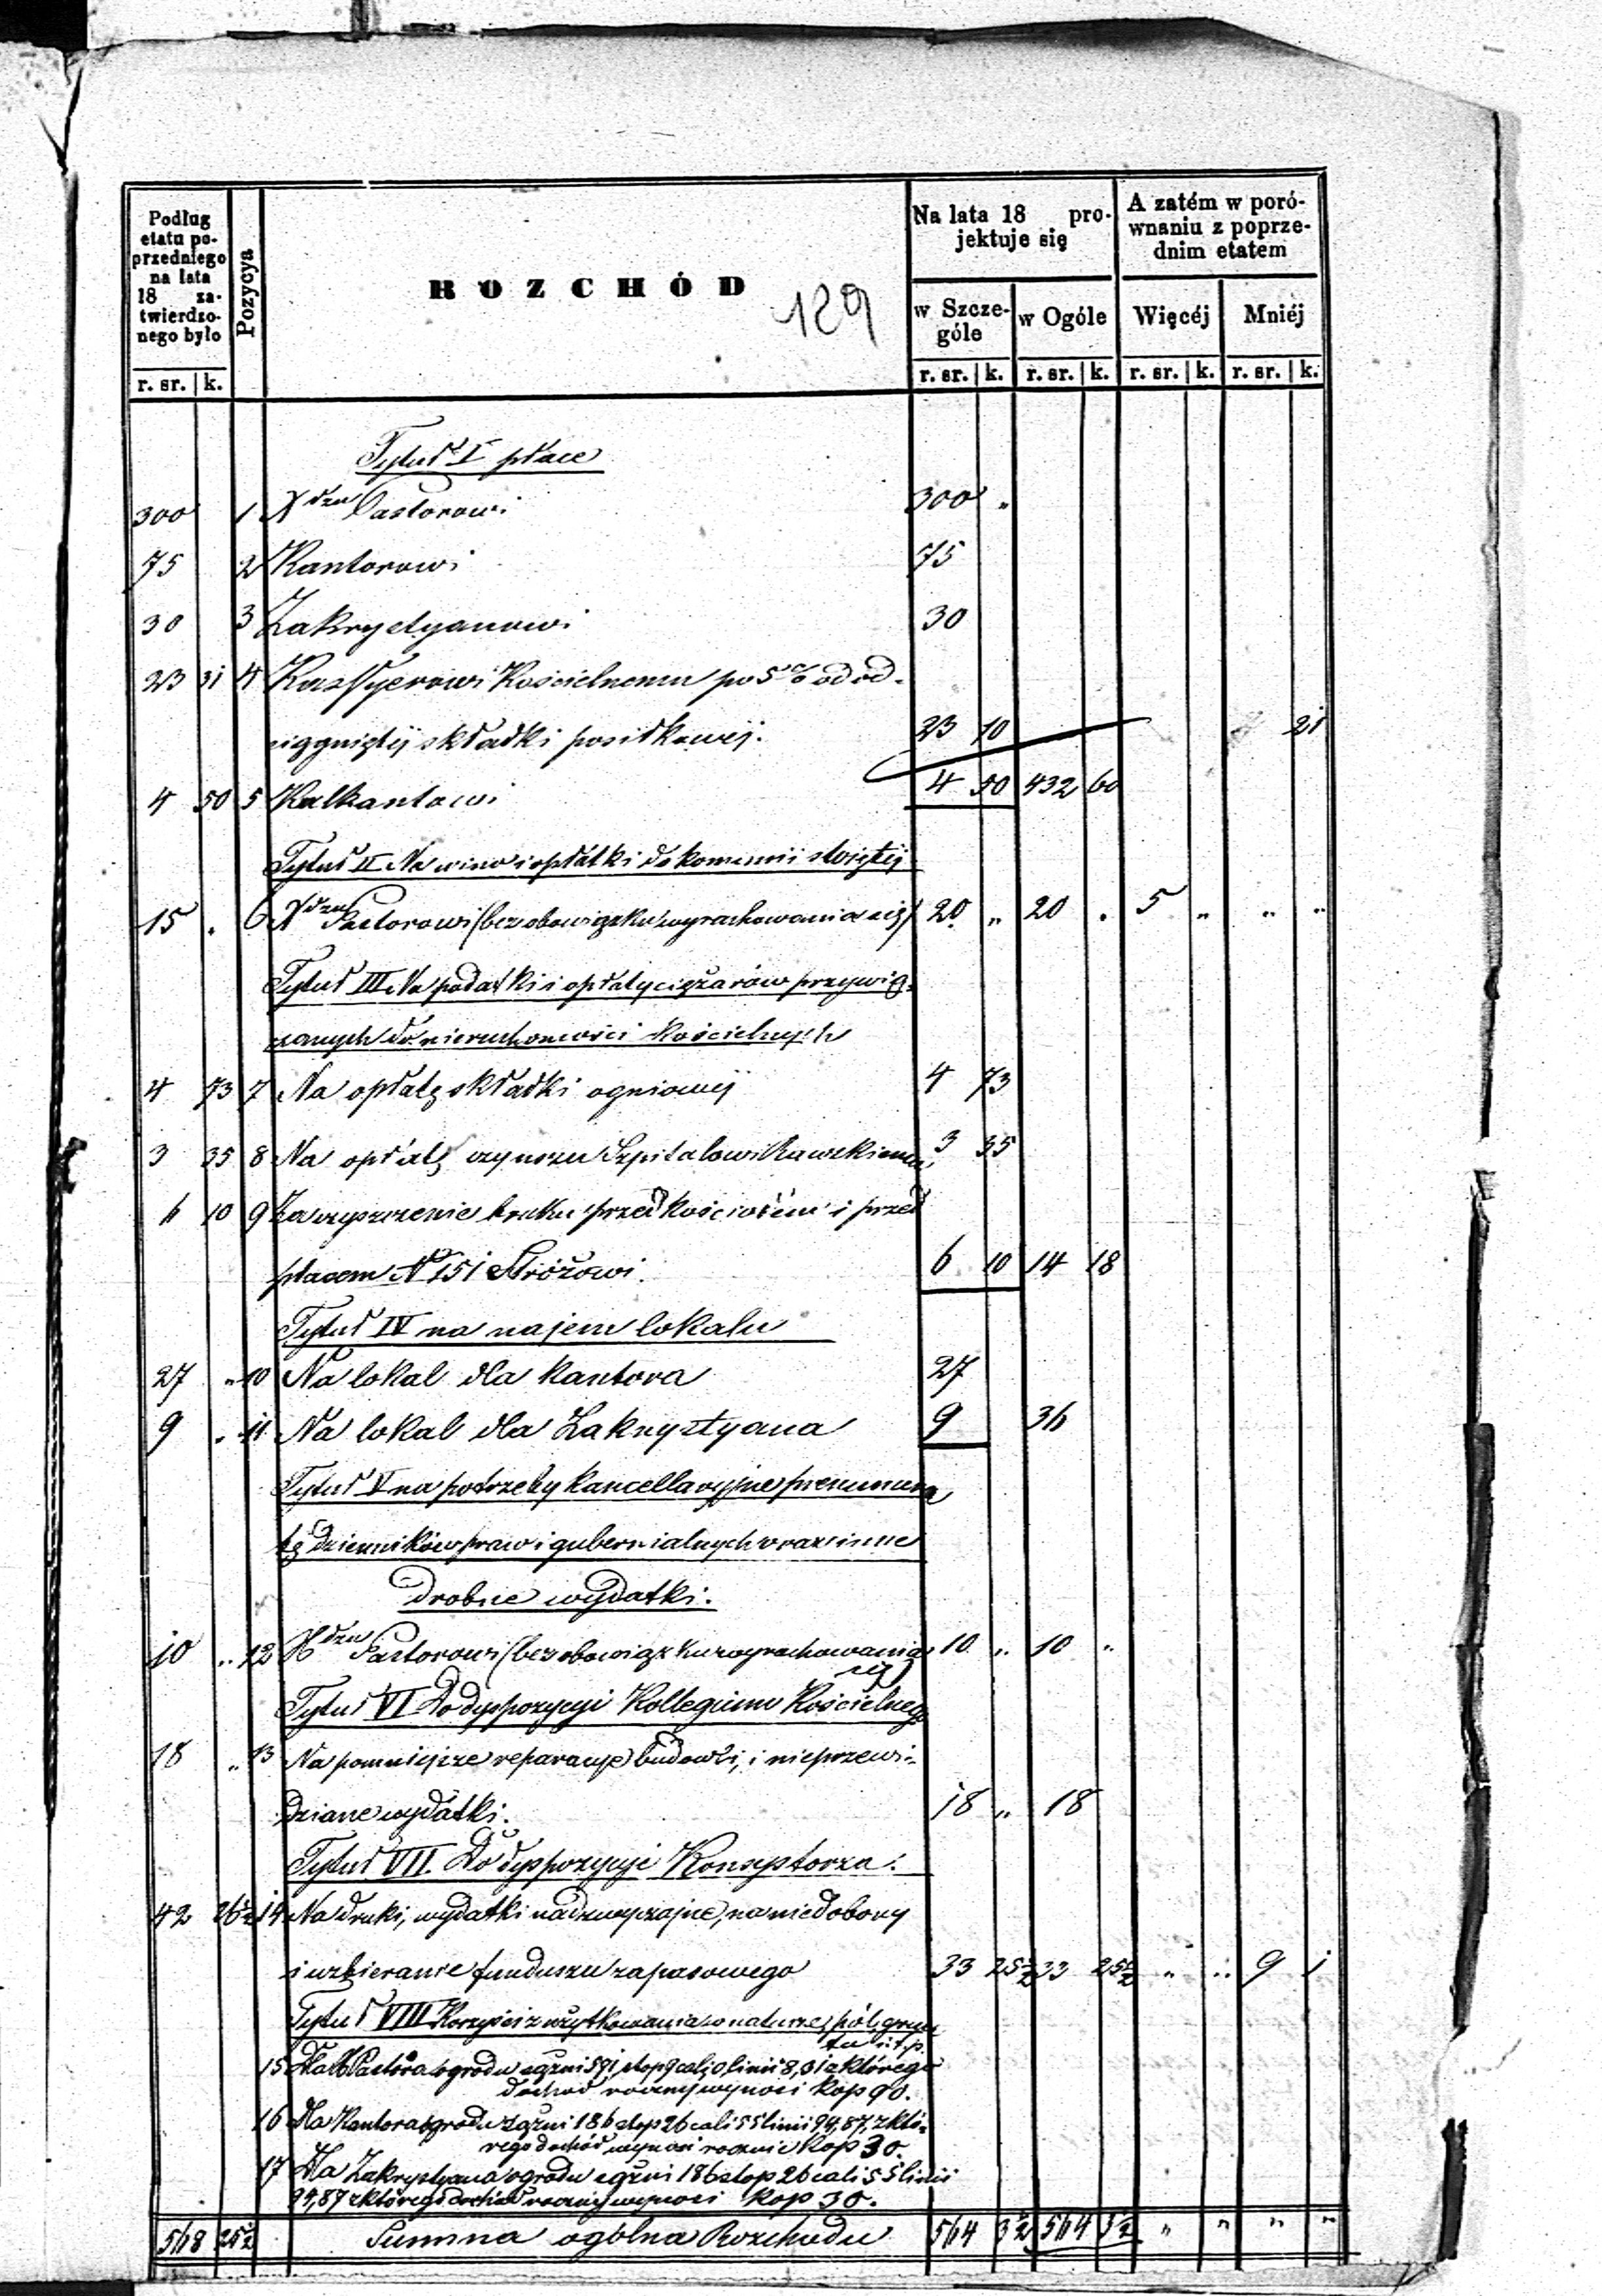 Podług etatu poprzedniego na lata 18 zatwierdzonego było
Pozycya
ROZCHÓD
129
Na lata 18 projektuje się
A zatém w porównaniu z poprzednim etatem
w Szczególe
w Ogóle
Więcéj
Mniéj
r. sr. k. r. sr. k. r. sr. k. r. sr. k. r. sr. k.
Tytuł I płace
300 1 Xdzu Pastorowi 300 "
75 2 Kantorowi 75
30 3 Zakrystyanowi 30
23 31 4 Kassyerowi Kościelnemu po 5% od od-
ciągniętéj składki posiłkowéj. 23 10 21
4 50 5 Kalkantowi 4 50 432 60
Tytuł II Na wino i opłatki do komunii świętéj
15 " 6 Xdzu Pastorowi (bez obowiązku wyrachowania się) 20 " 20 " 5 " " "
Tytuł III Na podatki i opłaty ciężarów przywią-
zanych do nieruchomości kościelnych
4 73 7 Na opłatę składki ogniowéj 4 73
3 35 8 Na opłatę czynszu Szpitalowi Rawskiemu 3 35
6 10 9 Za czyszczenie bruku przed kościołem i przed
placem N 151 Stróżowi. 6 10 14 18
Tytuł IV na najem lokalu
27 " 10 Na lokal dla Kantora 27
9 " 11 Na lokal dla Zakrystyana 9 36
Tytuł V na potrzeby kancellaryjne prenumera
tę dzienników praw i gubernialnych oraz inne
drobne wydatki.
10 " 12 Xdzu Pastorowi (bez obowiązku wyrachowania 10 " 10 "
się)
Tytuł VI Do dyspozycyi Kollegium Kościelnego
18 " 13 Na pomniejsze reparacye budowli, i nieprzewi-
dziane wydatki. 18 " 18
Tytuł VII. Do dyspozycyi Konsystorza.
42 26½ 14 Na druki, wydatki nadzwyczajne, na niedobory
i uzbieranie funduszu zapasowego 33 25½ 33 25½ " " 9 1
Tytuł VIII Korzyści z użytkowania w naturze, pól, grun
tu i t. p.
15 Dla X Pastora ogrodu sążni 591 stop 9 cali 0 linii 8,31 z którego
dochod roczny wynosi kop 90.
16 Dla Kantora ogrodu sążni 186 stop 26 cali 55 linii 94,87, z któ-
rego dochód wynosi rocznie kop 30.
17 Dla Zakrystyana ogrodu sążni 186 stop 26 cali 55 linii
94,87 z którego dochód roczny wynosi kop 30.
568 25½ Summa ogólna Rozchodu 564 3½ 564 3½ " " " "